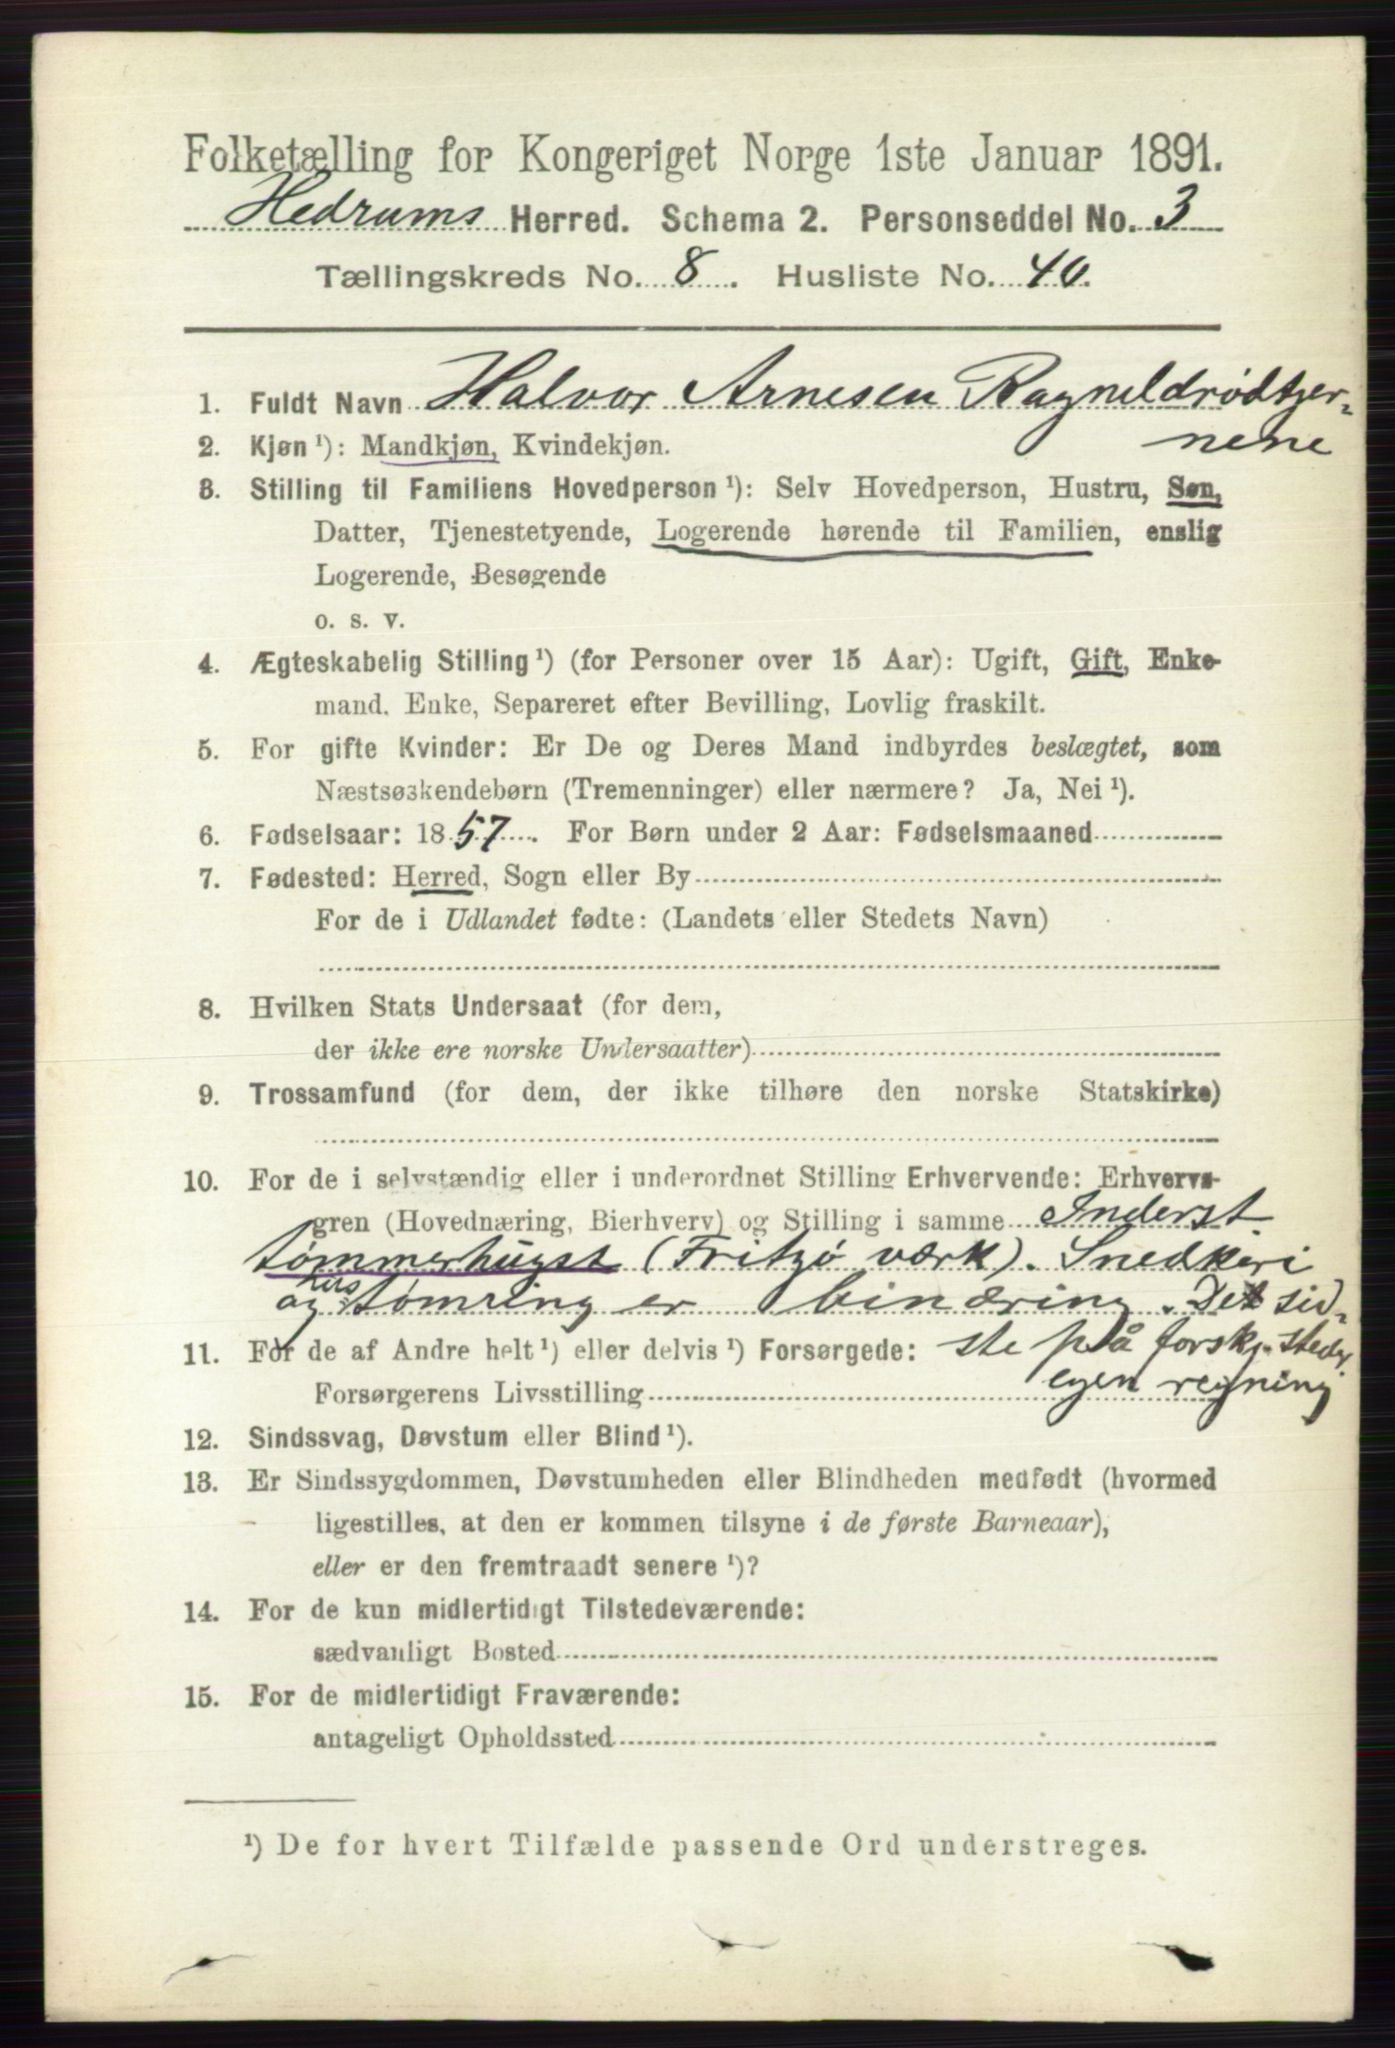 Folketælling for Kongeriget Norge 1ste Januar 1891.
Hedrums Herred. Schema 2. Personseddel No. 3
Tællingskreds No. 8. Husliste No. 40.
1. Fuldt Navn Halvor Arnesen Ragneldrødtjer-
nene
2. Kjøn ¹): Mandkjøn, Kvindekjøn.
3. Stilling til Familiens Hovedperson ¹): Selv Hovedperson, Hustru, Søn,
Datter, Tjenestetyende, Logerende hørende til Familien, enslig
Logerende, Besøgende
o. s. v.
4. Ægteskabelig Stilling ¹) (for Personer over 15 Aar): Ugift, Gift, Enke-
mand, Enke, Separeret efter Bevilling, Lovlig fraskilt.
5. For gifte Kvinder: Er De og Deres Mand indbyrdes beslægtet, som
Næstsøskendebørn (Tremenninger) eller nærmere? Ja, Nei ¹).
6. Fødselsaar: 1857. For Børn under 2 Aar: Fødselsmaaned
7. Fødested: Herred, Sogn eller By
For de i Udlandet fødte: (Landets eller Stedets Navn)
8. Hvilken Stats Undersaat (for dem,
der ikke ere norske Undersaatter)
9. Trossamfund (for dem, der ikke tilhøre den norske Statskirke)
10. For de i selvstændig eller i underordnet Stilling Erhvervende: Erhvervs-
gren (Hovednæring, Bierhverv) og Stilling i samme Inderst
tømmerhugst (Fritzø værk). Snedkeri
og hustømring er binæring. Det sid-
11. For de af Andre helt ¹) eller delvis ¹) Forsørgede: ste på forskj. steder
Forsørgerens Livsstilling egen regning
12. Sindssvag, Døvstum eller Blind ¹).
13. Er Sindssygdommen, Døvstumheden eller Blindheden medfødt (hvormed
ligestilles, at den er kommen tilsyne i de første Barneaar),
eller er den fremtraadt senere ¹)?
14. For de kun midlertidigt Tilstedeværende:
sædvanligt Bosted
15. For de midlertidigt Fraværende:
antageligt Opholdssted
¹) De for hvert Tilfælde passende Ord understreges.